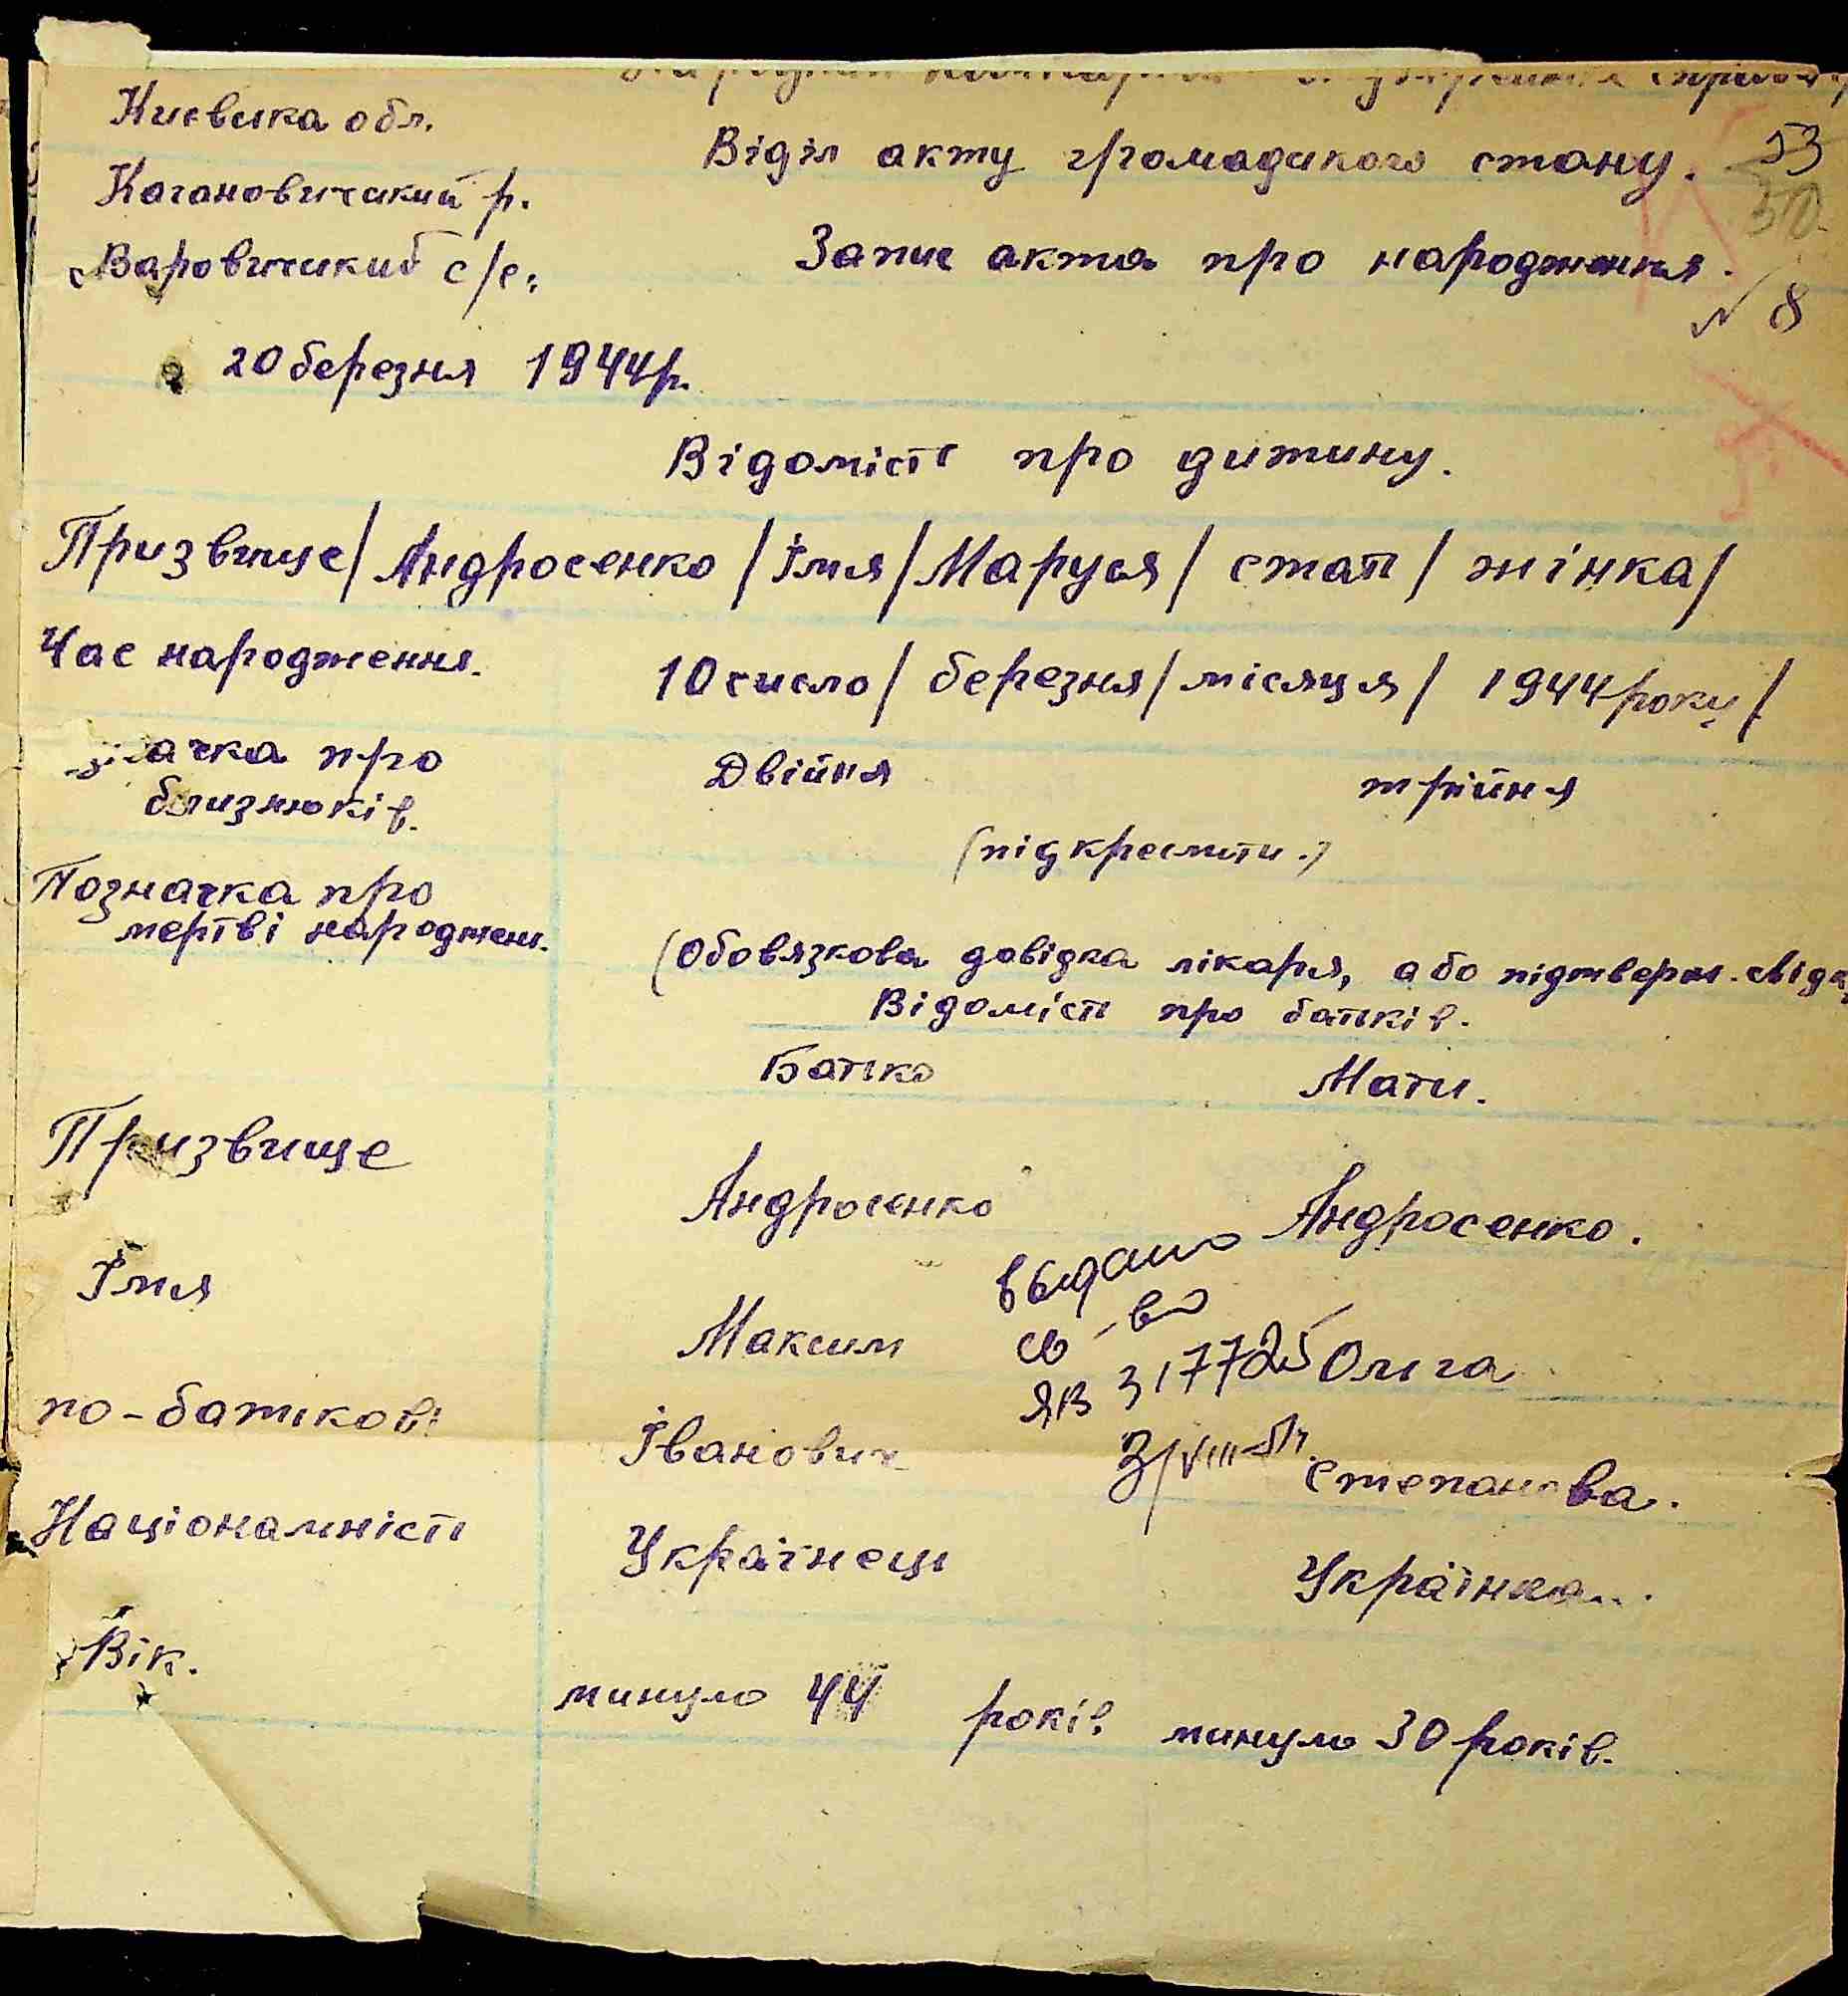 Киевска обл.
Відділ акту громадського стану. 53
50
Кагановичський р.
Варовичський с/р.
Запис акта про народження.
№ 8
20 березня 1944 р.
Відомість про дитину.
Призвище/ Андросенко /Імя/ Маруся/ стать/ жінка/
Час народження. 10 число/ березня/ місяця/ 1944 року/
ачка про близнюків. Двійня трійня
(підкреслити.)
Позначка про
мертві народжен.
(Обовязкова довідка лікаря, або підтверж. свідк
Відомість про батьків.
Батько Мати.
Призвище Андросенко Андросенко.
выдано
св-во
ЯВ 317725
3/VIII
Імя Максим Ольга
по-батькові Іванович Степанова.
Національність Українець Українка.
Вік. минуло 44 років минуло 30 років.